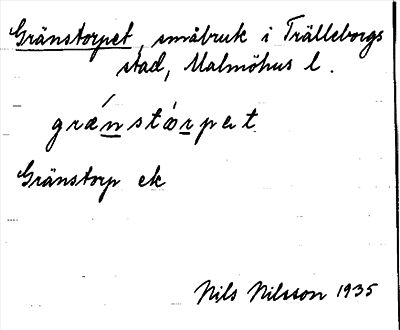 Gränstorpet, småbruk i Trälleborgs
stad, Malmöhus l.
grǽnstɷrpet
Gränstorp ek
Nils Nilsson 1935